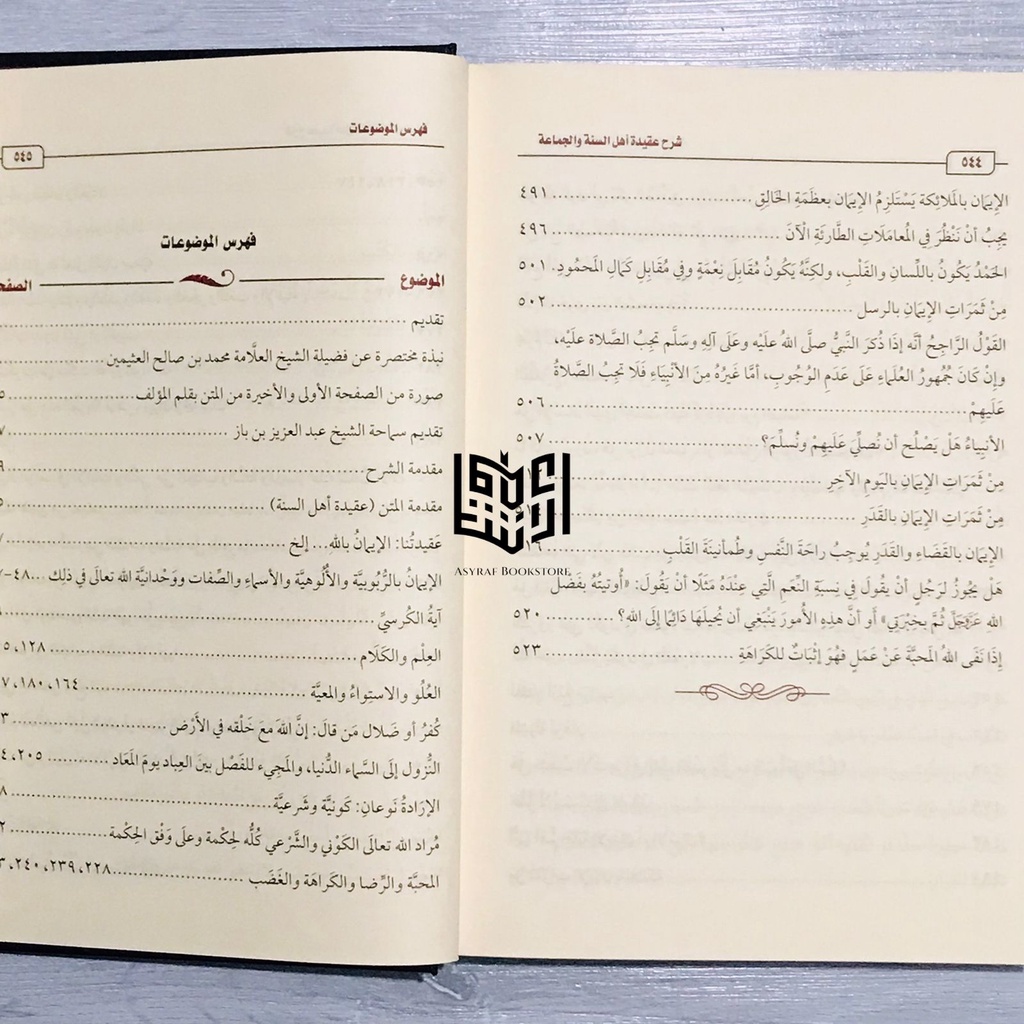 شرح عقيدة أهل السنة والجماعة
٥٤٤
الإِيمَان بالمَلائِكة يَسْتَلزِمُ الإِيمَان بعظَمَةِ الخَالِقِ ........ ٤٩١
يجِبُ أنْ نَنْظُرَ فِي المُعامَلَاتِ الطَّارئَةِ الْآنَ ........ ٤٩٦
الحَمْدُ يَكُونُ باللِّسانِ والقَلْبِ، ولكِنَّهُ يَكُونُ مُقَابِلَ نِعْمَةٍ وفِي مُقَابِلِ كَمَالِ المَحمُودِ. ٥٠١
مِنْ ثمَرَاتِ الإِيمَانِ بالرسل ........ ٥٠٢
القَوْلُ الرَّاجِحُ أنَّه إذَا ذُكرَ النَّبيُّ صلَّى اللهُ علَيْه وعَلَى آلِهِ وسَلَّم تجِبُ الصَّلاة علَيْه،
وإنْ كَانَ جُمْهُورُ العُلَماءِ عَلَى عَدَمِ الوُجُوبِ، أمَّا غَيرُهُ مِنَ الأنْبِيَاءِ فَلَا تجِبُ الصَّلَاةُ
عَلَيهِمْ ........ ٥٠٦
الأنبِياءُ هَلْ يَصْلُح أن نُصلِّيَ عَلَيهِمْ ونُسلِّمَ؟ ........ ٥٠٧
مِنْ ثمَرَاتِ الإِيمَانِ باليَومِ الآخِرِ ........
مِنْ ثمَرَاتِ الإِيمَانِ بالقَدَرِ ........
الإِيمَان بالقَضَاءِ والقَدَرِ يُوجِبُ راحَةَ النَّفْسِ وطُمأنِينَةَ القَلْبِ ........
هَلْ يجُوزُ لرَجُلٍ أنْ يقُولَ فِي نِسبَةِ النِّعَم الَّتِي عِنْدَهُ مَثَلًا أنْ يَقُولَ: «أُوتيتُهُ بفَضْل
اللهِ عَزَّوَجَلَّ ثُمَّ بخِبْرَتِي» أَو أنَّ هذِهِ الأُمورَ يَنْبَغِي أن يُحيلَهَا دَائِمًا إلَى اللهِ؟ ........ ٥٢٠
إذَا نَفَى اللهُ المَحبَّةَ عَنْ عَمَلٍ فهُوَ إثْبَاتٌ للكَرَاهَةِ ........ ٥٢٣
فهرس الموضوعات
٥٤٥
فهرس الموضوعات
الموضوع
تقديم ........
نبذة مختصرة عن فضيلة الشيخ العلَّامة محمد بن صالح العثيمين ........
صورة من الصفحة الأولى والأخيرة من المتن بقلم المؤلف ........
تقديم سماحة الشيخ عبد العزيز بن باز ........
مقدمة الشرح ........
مقدمة المتن (عقيدة أهل السنة) ........
عَقِيدتُنا: الإيمانُ بالله... إلخ ........
الإيمانُ بالرُّبُوبيَّة والأُلُوهيَّة والأسماءِ والصِّفات ووَحْدانيَّة الله تعالَى في ذلك ...٤٨-
آيةُ الكُرسيِّ ........
العِلْم والكَلَام ........ ١٢٨،
العُلُو والاستِواءُ والمعيَّة ........ ١٦٤، ١٨٠،
كُفرُ أو ضَلال مَن قالَ: إنَّ اللهَ معَ خَلْقه في الأَرْض ........
النُّزول إلَى السَّماء الدُّنيا، والمَجِيء للفَصْل بينَ العِباد يومَ المَعَاد ........ ٢٠٥،
الإرَادةُ نَوعانِ: كَونيَّة وشَرعيَّة ........
مُراد الله تعالَى الكَوْني والشَّرْعي كلُّه لحِكْمة وعلَى وَفْق الحِكْمة ........
المحبَّة والرِّضا والكَراهَة والغَضَب ........ ٢٢٨، ٢٣٩، ٢٤٠،
ASYRAF BOOKSTORE